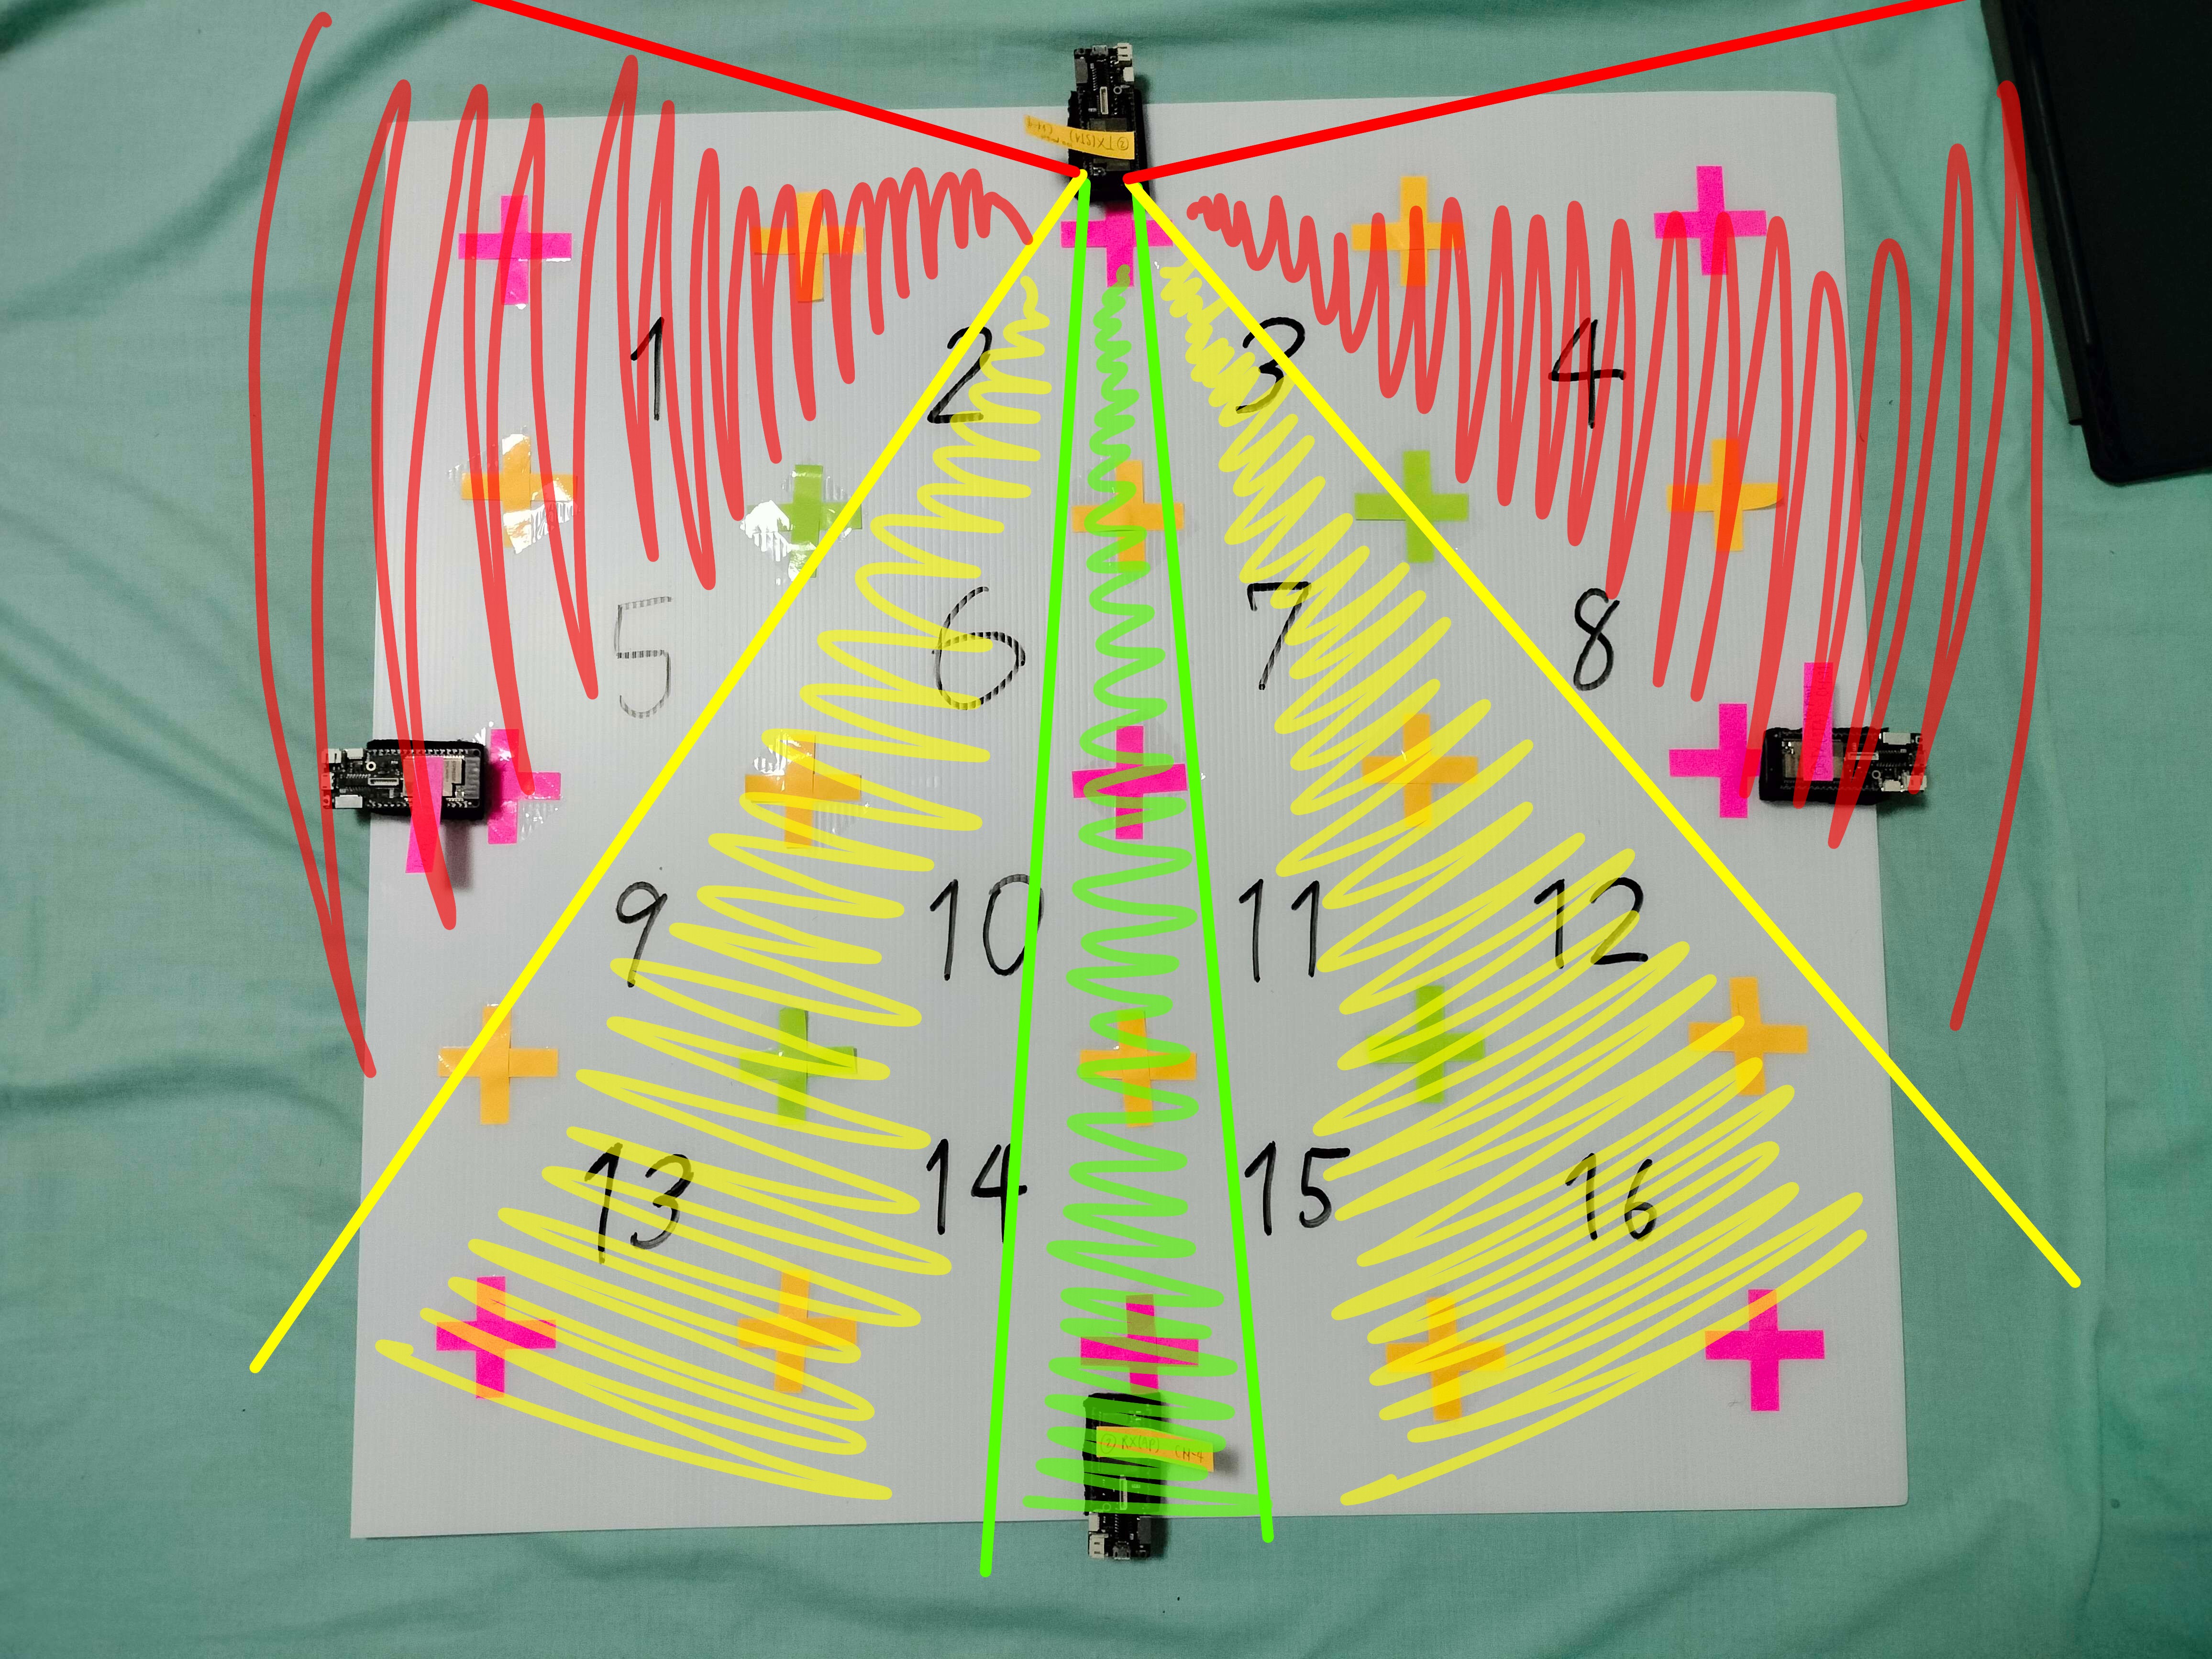 ② TX(STA) CH-4
1 2 3 4
5 6 7 8
9 10 11 12
13 14 15 16
② RX(AP) CH-4